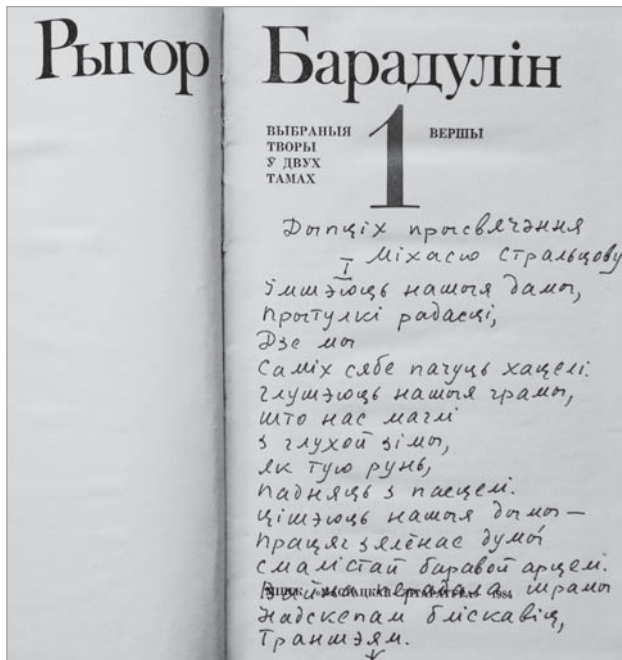 Рыгор Барадулін
ВЫБРАНЫЯ
ТВОРЫ
Ў ДВУХ
ТАМАХ
1
ВЕРШЫ
Дыпціх прысвячэння
Міхасю Стральцову
I
Імшэюць нашыя дамы,
Прытулкі радасці,
Дзе мы
Саміх сябе пачуць хацелі.
Глушэюць нашыя грамы,
што нас маглі
з глухой зімы,
як тую рунь,
падняць з пасцелі.
Цішэюць нашыя дымы —
Працяг зялёнае думы
смалістай баравой арцелі.
перадала шрамы
Надскепам бліскавіц,
Траншэям.
1984